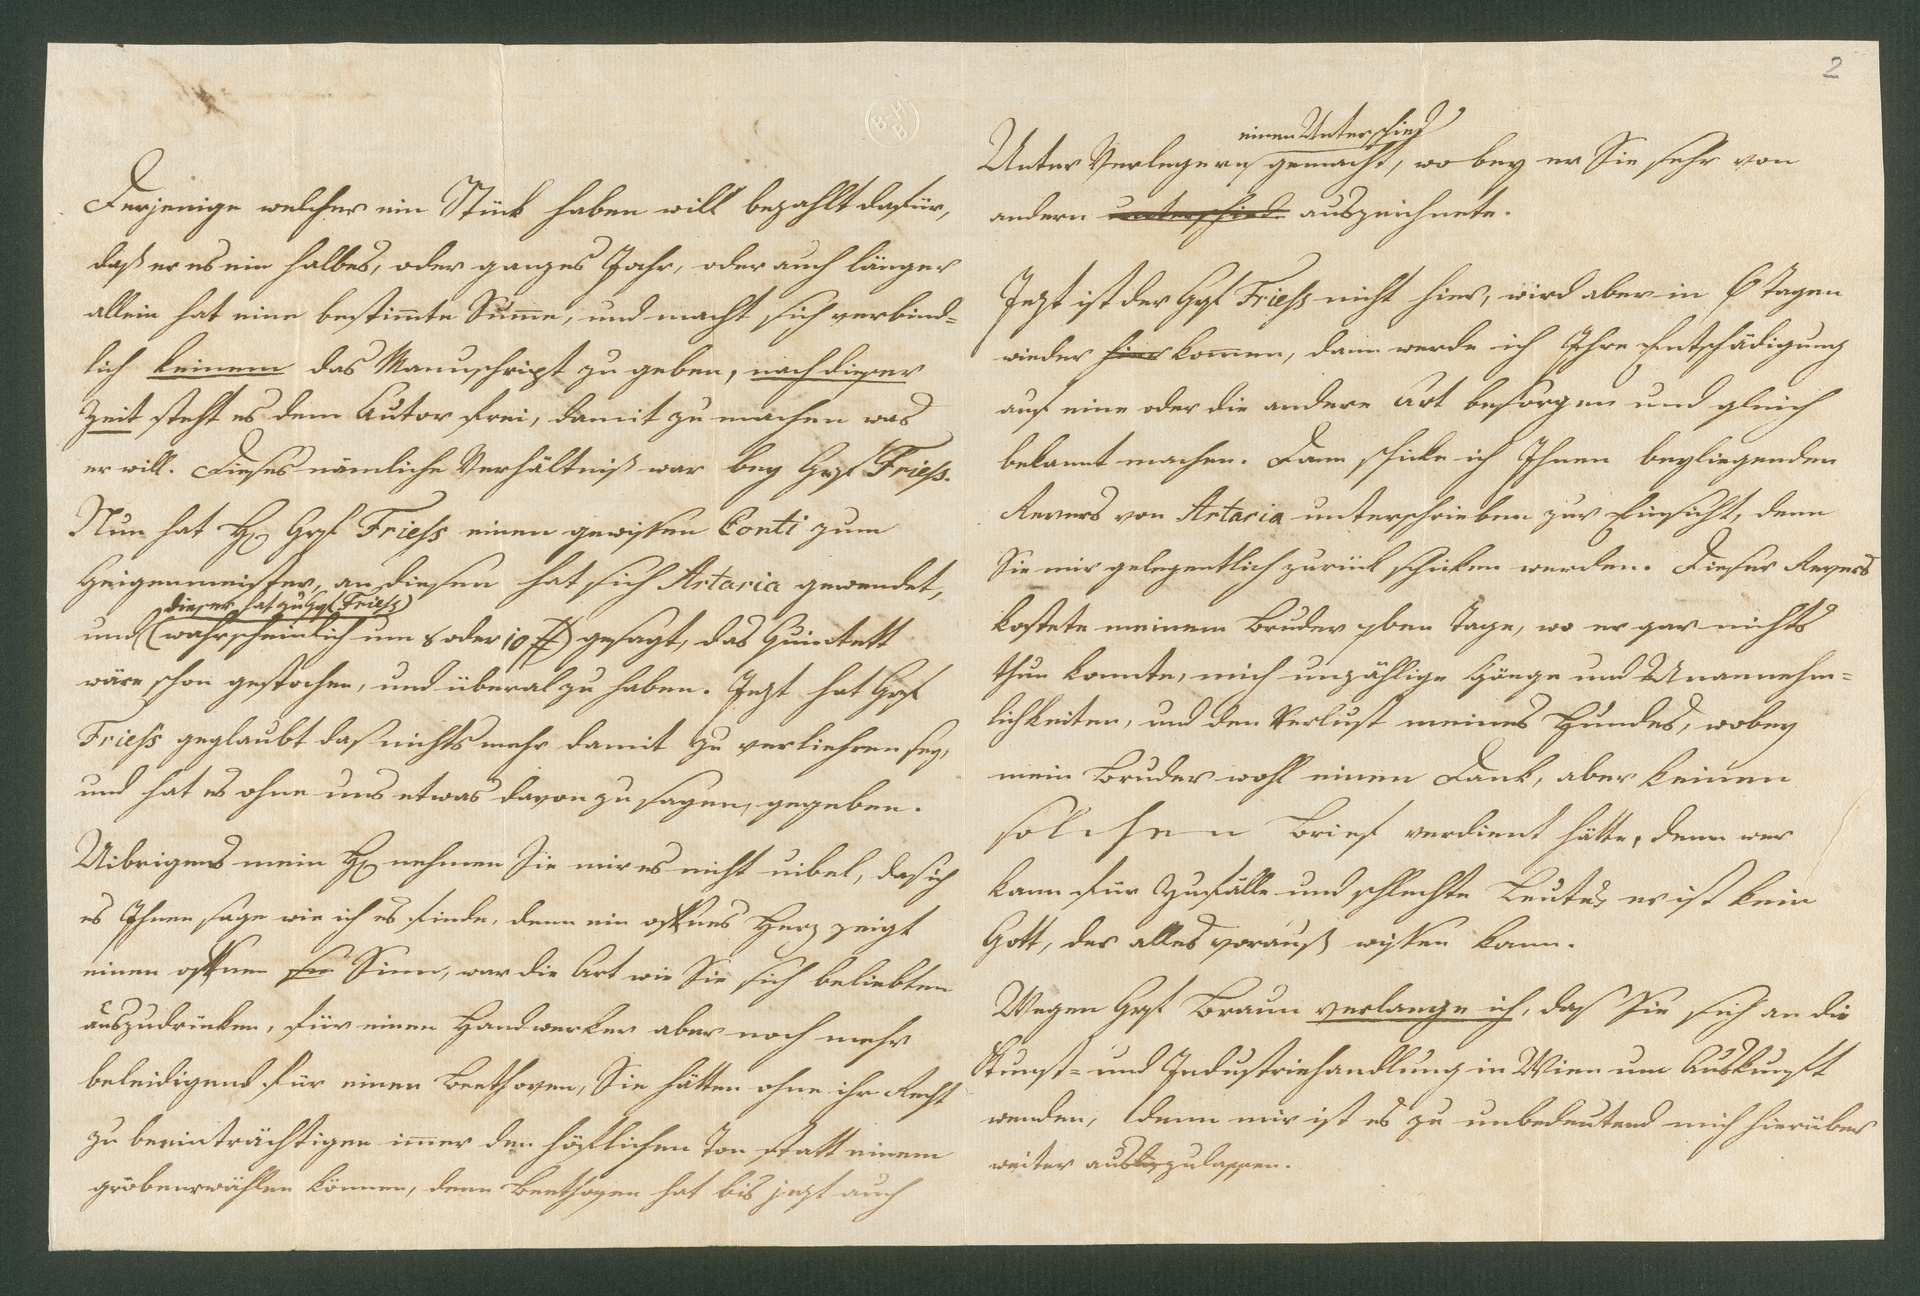 Derjenige welcher ein Stück haben will bezahlt dafür,
daß er es ein halbes, oder ganzes Jahr, oder auch länger
allein hat eine bestimte Sume, und macht sich verbind=
lich keinem das Manuschript zu geben, nach dieser
Zeit steht es dem Autor frei, damit zu machen was
er will. Dieses nämliche Verhältniß war bey Graf Friess.
Nun hat H. Graf Friess einen gewissen Conti zum
Geigenmeister, an diesen hat sich Artaria gewendet,
dieser hat zu Graf Friess)
und (wahrscheinlich um 8 oder 10 #) gesagt, das Quintett
wäre schon gestochen, und überal zu haben. Jezt hat Graf
Friess geglaubt daß nichts mehr damit zu verliehren sey,
und hat es ohne uns etwas davon zu sagen, gegeben.
Uibrigens mein H. nehmen Sie mir es nicht uibel, das ich
es Ihnen sage wie ich es finde, denn ein offnes Herz zeigt
einen offnen Sinn, war die Art wie Sie sich beliebten
auszudrüken, für einen Handwerker aber noch mehr
beleidigend für einen Beethoven, Sie hätten ohne ihr Recht
zu beeinträchtigen imer den höflichen Ton statt einem
groben wählen können, denn Beethoven hat bis jezt auch
2
einen Unterschied
Unter Verlegern gemacht, wo bey er Sie sehr von
andern unterschied auszeichnete.
Jezt ist der Graf Friess nicht hier, wird aber in 6 Tagen
wieder hier komen, dann werde ich Ihre Entschädigung
auf eine oder die andere Art besorgen und gleich
bekannt machen. Dann schicke ich Ihnen beyliegenden
Revers von Artaria unterschrieben zur Einsicht, denn
Sie mir gelegentlich zurük schiken werden. Dieser Revers
kostete meinem Bruder 7ben Tage, wo er gar nichts
thun konnte, mich unzählige Gänge und Unannehm=
lichkeiten, und den Verlust meines Hundes, wobey
mein Bruder wohl einen Dank, aber keinen
solchen Brief verdient hätte, denn wer
kann für Zufälle und schlechte Leute, er ist kein
Gott, der alles vorauß wissen kann.
Wegen Graf Braun verlange ich, daß Sie sich an die
Kunst= und Industriehandlung in Wien um Auskunft
wenden, denn mir ist es zu unbedeutend mich hierüber
weiter auszulassen.